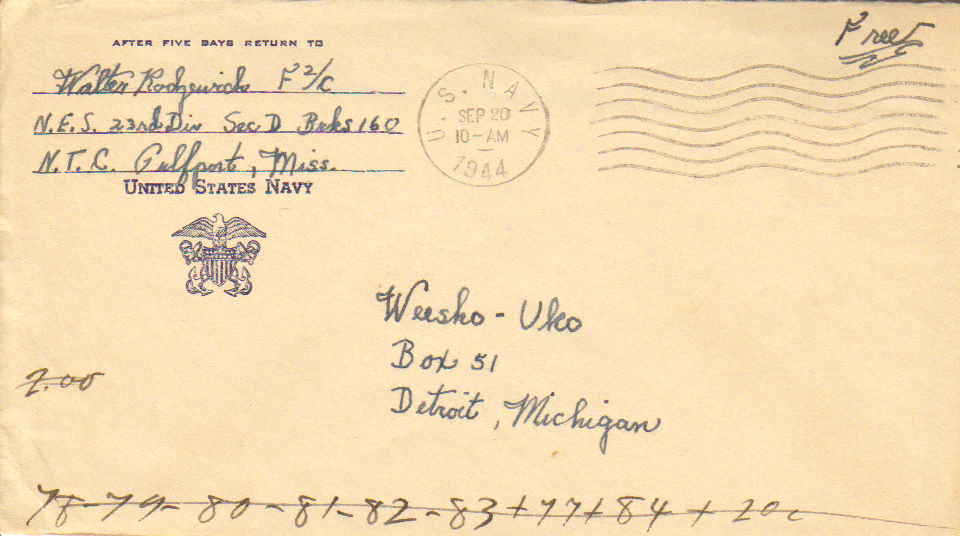 AFTER FIVE DAYS RETURN TO
Walter Rodzewich F 2/C
N.E.S. 23rd Div Sec D Brks 160
N.T.C. Gulfport, Miss.
UNITED STATES NAVY
U.S. NAVY
SEP 20
10-AM
1944
Free
Weesho-Uko
Box 51
Detroit, Michigan
2.00
78-79-80-81-82-83+77+84+20c